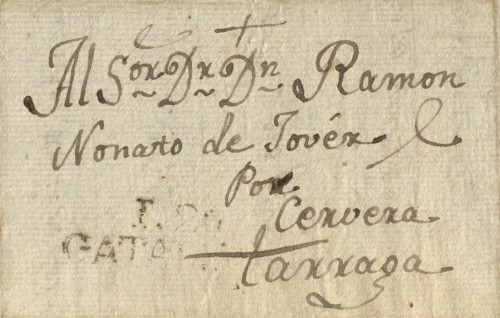 Al Sor Dr Dn Ramon
Nonato de Jovér
Por
Cervera
Tarraga